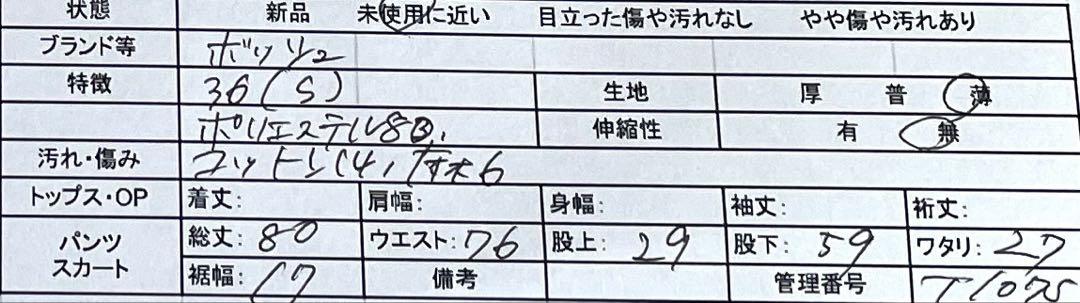 状態 新品 未使用に近い 目立った傷や汚れなし やや傷や汚れあり
ブランド等 ボッシュ
特徴 36(S) 生地 厚 普 薄
ポリエステル80, 伸縮性 有 無
汚れ・傷み コットン14, 6
トップス・OP 着丈: 肩幅: 身幅: 袖丈: 裄丈:
パンツ スカート 総丈:80 ウエスト:76 股上:29 股下:59 ワタリ:27
裾幅:17 備考 管理番号